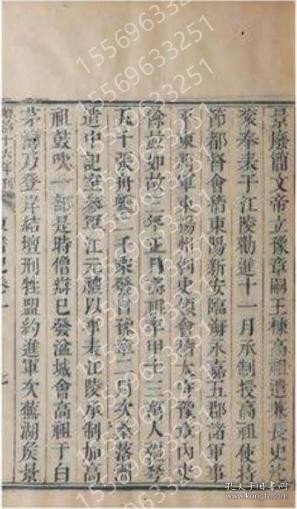 景廢簡文帝立豫章嗣王棟高祖遣兼長史沈
袞奉表于江陵勸進十一月承制授高祖使持
節都督會稽東陽新安臨海永嘉五郡諸軍事
平東將軍東揚州刺史領會稽太守豫章內史
餘並如故三年正月高祖率甲士三萬人彊弩
五千張舟艦二千乘發自豫章二月次桑落洲
遣中記室參軍江元禮以事表江陵承制加高
祖鼓吹一部是時僧辯已發盆城會高祖于白
茅灣乃登岸結壇刑牲盟約進軍次蕪湖侯景
七
15569633251
15569633251
15569633251
15569633251
孔夫子旧书网